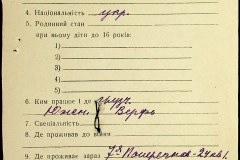 4. Національність укр.
5. Родинний стан
при ньому діто до 16 років:
1)
2)
3)
4)
5)
6. Ким працює і де
Южн. Верфь
7. Спеціяльність
8. Де проживав до війни
9. Де проживає зараз 7я Поперечная - 24 кв 1